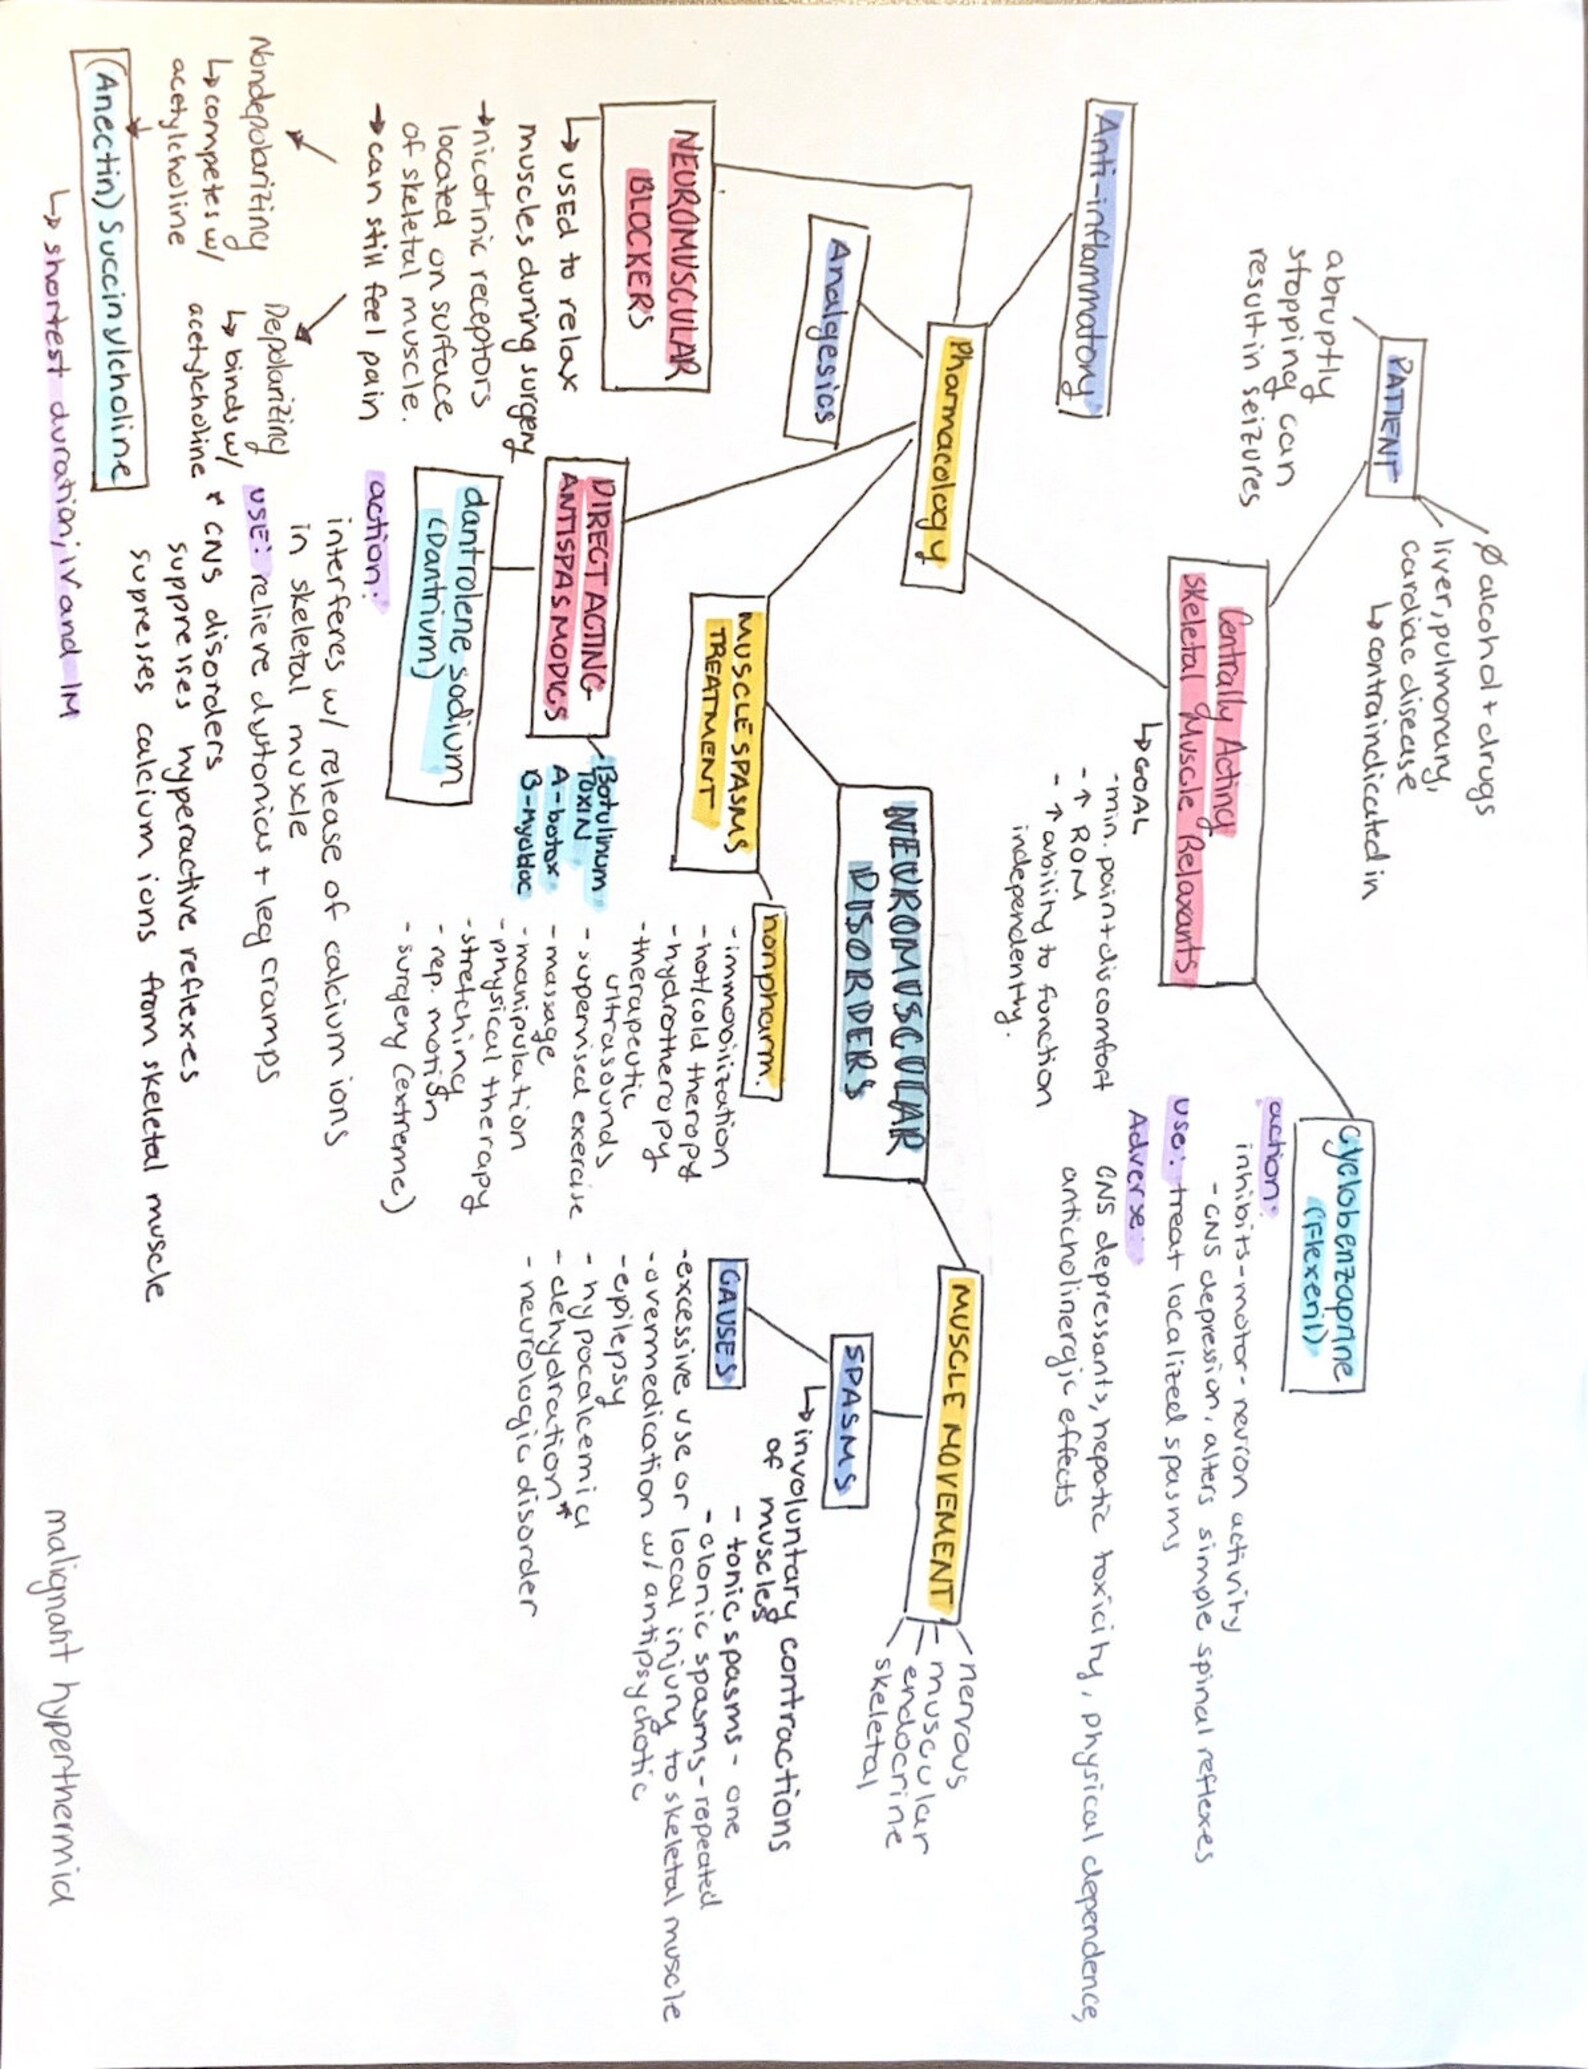 PATIENT
∅ alcohol + drugs
liver, pulmonary,
cardiac disease
↳ contraindicated in
abruptly
stopping can
result in seizures
Centrally Acting
Skeletal Muscle Relaxants
↳ GOAL
- min. pain + discomfort
- ↑ ROM
- ↑ ability to function
independently.
Cyclobenzaprine
(Flexeril)
action:
inhibits-motor-neuron activity
- CNS depression, alters simple spinal reflexes
use: treat localized spasms
Adverse:
CNS depressants, hepatic toxicity, physical dependence,
anticholinergic effects
Anti-inflammatory
Pharmacology
Analgesics
NEUROMUSCULAR
BLOCKERS
↳ USED to relax
muscles during surgery
→ nicotinic receptors
located on surface
of skeletal muscle.
→ can still feel pain
Nondepolarizing
↳ competes w/
acetylcholine
Depolarizing
↳ binds w/
acetylcholine
(Anectin) Succinylcholine
↳ shortest duration; IV and IM
NEUROMUSCULAR
DISORDERS
MUSCLE SPASMS
TREATMENT
nonpharm.
- immobilization
- hot/cold therapy
- hydrotherapy
- therapeutic
ultrasounds
- supervised exercise
- massage
- manipulation
- physical therapy
- stretching
- rep. motion
- surgery (extreme)
DIRECT ACTING
ANTISPASMODICS
Botulinum
TOXIN
A-botox
B-Myobloc
dantrolene sodium
(Dantrium)
action:
interferes w/ release of calcium ions
in skeletal muscle
USE: relieve dystonias + leg cramps
* CNS disorders
suppresses hyperactive reflexes
supresses calcium ions from skeletal muscle
MUSCLE MOVEMENT
nervous
muscular
endocrine
skeletal
SPASMS
↳ involuntary contractions
of muscles
- tonic spasms - one
- clonic spasms - repeated
CAUSES
- excessive use or local injury to skeletal muscle
- overmedication w/ antipsychotic
- epilepsy
- hypocalcemia
- dehydration*
- neurologic disorder
malignant hyperthermia